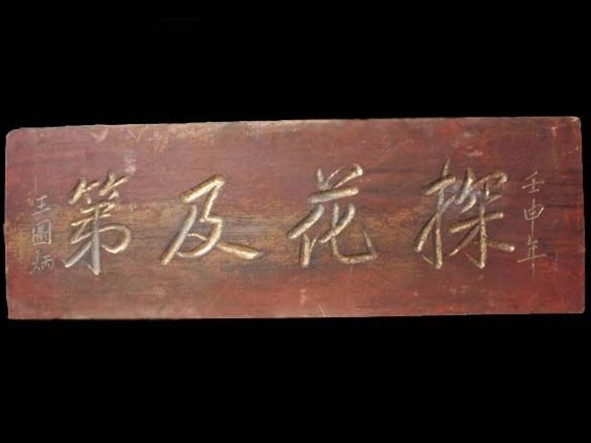 壬申年
探花及第
王圖炳